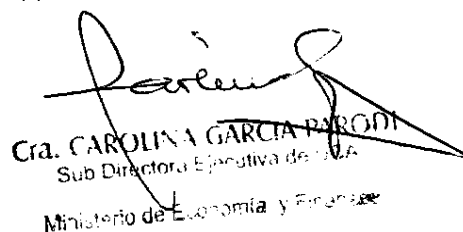 Cra. CAROLINA GARCIA PARODI
Sub Directora Ejecutiva de
Ministerio de Economía y Finanzas